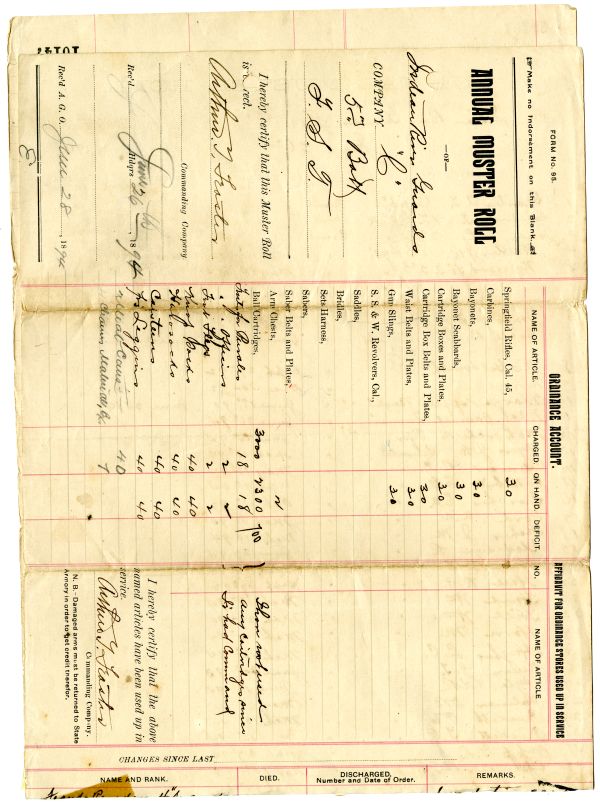 FORM No. 95.
Make no Indorsement on this Blank.
ANNUAL MUSTER ROLL
—OF—
Indian River Guards
COMPANY "C"
5th Batt
F. S. T.
I hereby certify that this Muster Roll
is correct.
Arthur T. Feaster
Commanding Company
Rec'd Hdqrs June 26th 1894
Rec'd A. G. O. June 28 1894
ORDNANCE ACCOUNT.
NAME OF ARTICLE. CHARGED. ON HAND. DEFICIT.
Springfield Rifles, Cal. 45, 30
Carbines,
Bayonets, 30
Bayonet Scabbards, 30
Cartridge Boxes and Plates, 30
Cartridge Box Belts and Plates, 30
Waist Belts and Plates, 30
Gun Slings, 30
S. S. & W. Revolvers, Cal.,
Saddles,
Bridles,
Sets Harness,
Sabers,
Saber Belts and Plates,
Arm Chests,
Ball Cartridges, 3000 2300 700
18 18
" " Officers 2 2
2 2
40 40
40 40
Canteens 40 40
Leggins 40 40
40
AFFIDAVIT FOR ORDNANCE STORES USED UP IN SERVICE
NO. NAME OF ARTICLE
I have not used
any Cartridges since
I've had Command
I hereby certify that the above
named articles have been used up in
service.
Arthur T. Feaster
Commanding Company.
N. B.—Damaged arms must be returned to State
Armory in order to get credit therefor.
CHANGES SINCE LAST
NAME AND RANK. DIED. DISCHARGED, Number and Date of Order. REMARKS.